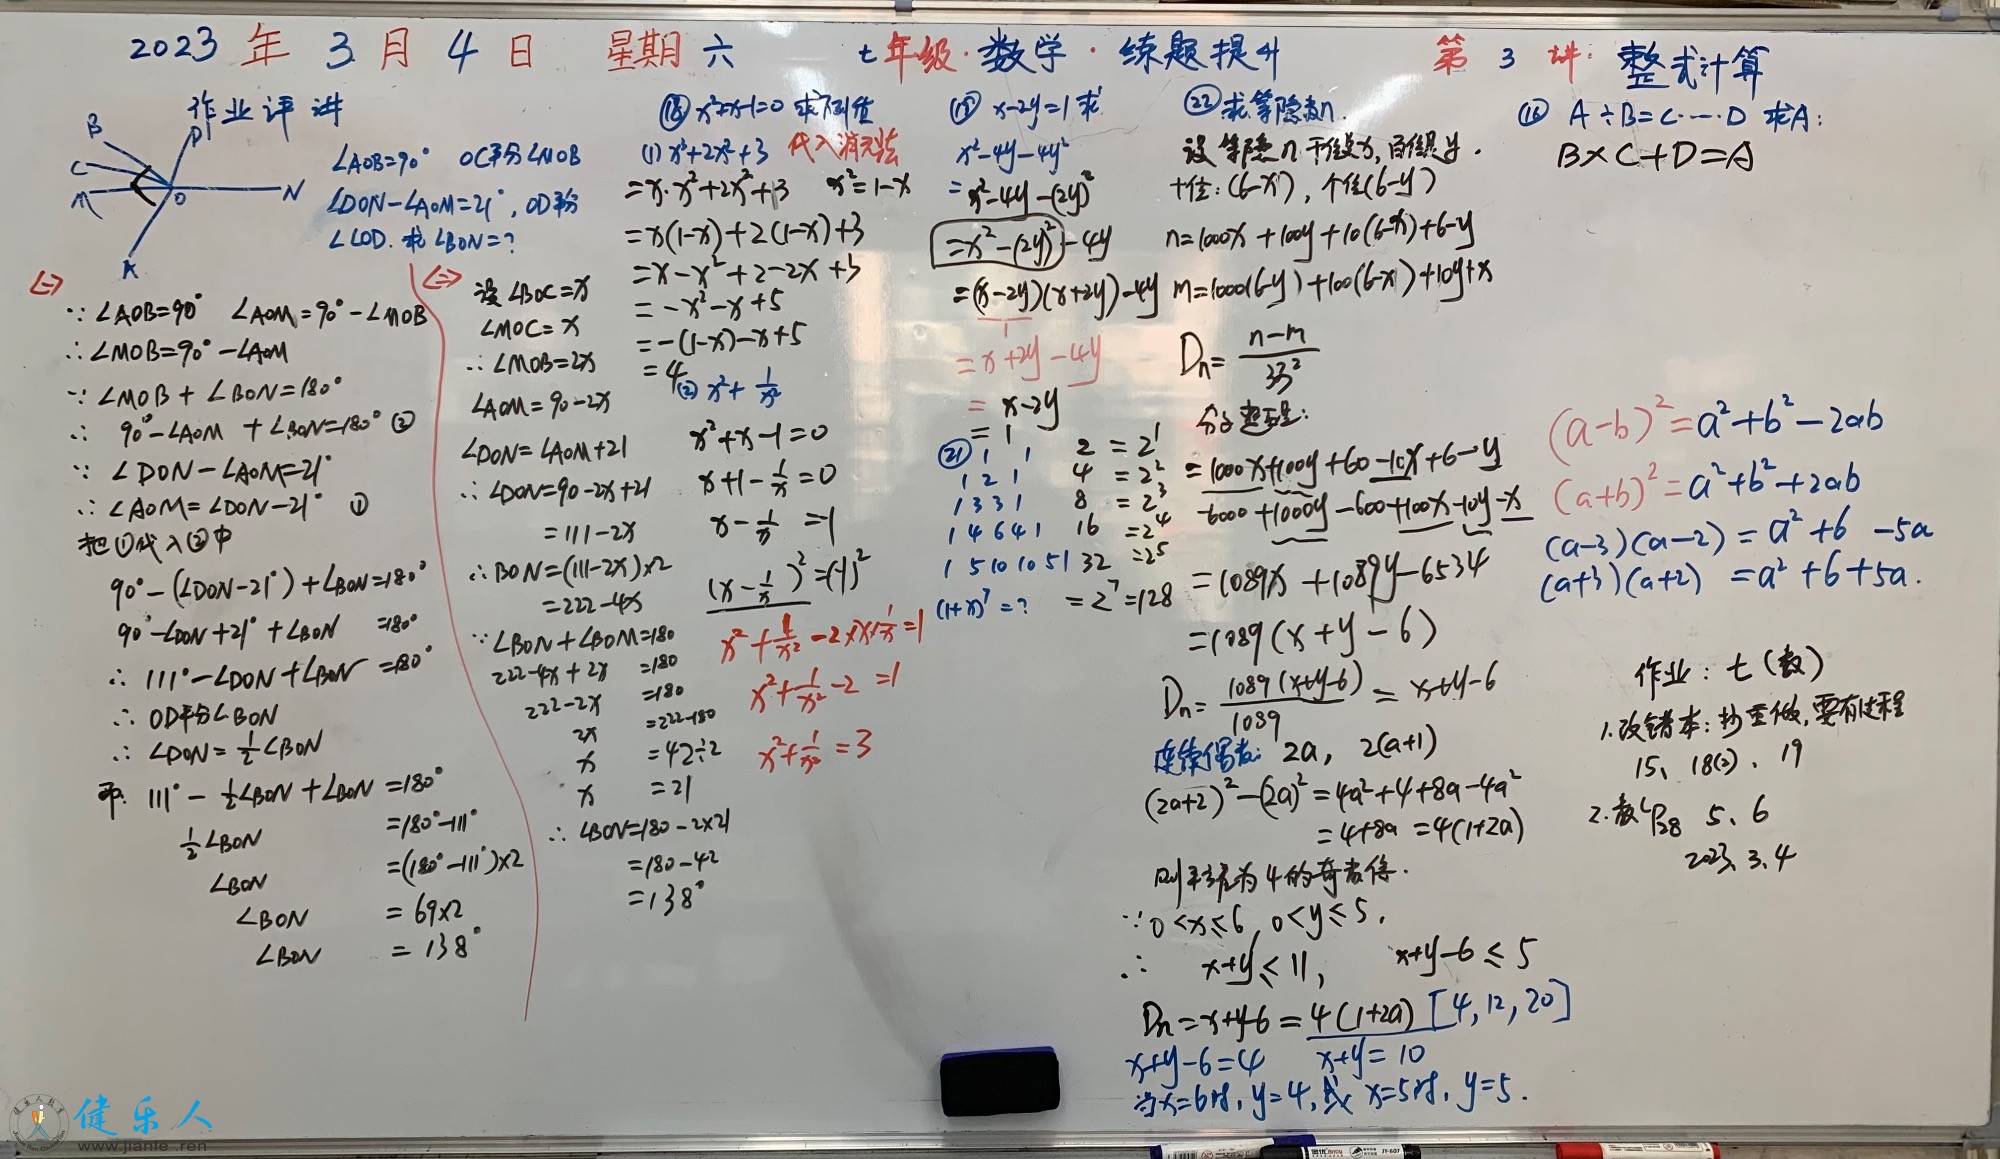 2023 年 3 月 4 日 星期 六 七年级·数学·练题提升 第 3 讲: 整式计算
作业评讲
B
C
M
D
O
N
A
∠AOB=90° OC平分∠MOB
∠DON-∠AOM=21°, OD平分
∠COD. 求∠BON=?
<一>
∵ ∠AOB=90° ∠AOM=90°-∠MOB
∴ ∠MOB=90°-∠AOM
∵ ∠MOB+∠BON=180°
∴ 90°-∠AOM+∠BON=180° ②
∵ ∠DON-∠AOM=21°
∴ ∠AOM=∠DON-21° ①
把①代入②中
90°-(∠DON-21°)+∠BON=180°
90°-∠DON+21°+∠BON =180°
∴ 111°-∠DON+∠BON=180°
∴ OD平分∠BON
∴ ∠DON=1/2∠BON
即. 111°-1/2∠BON+∠BON=180°
1/2∠BON =180°-111°
∠BON =(180°-111°)×2
∠BON = 69×2
∠BON = 138°
<二>
设∠BOC=x
∠MOC=x
∴ ∠MOB=2x
∠AOM=90-2x
∠DON=∠AOM+21
∴ ∠DON=90-2x+21
=111-2x
∴ BON=(111-2x)×2
=222-4x
∵ ∠BON+∠BOM=180
222-4x+2x =180
222-2x =180
2x =222-180
x =42÷2
x =21
∴ ∠BON=180-2×21
=180-42
=138°
⑱ x²+x-1=0 求下列值
(1) x³+2x²+3 代入消元法
=x·x²+2x²+3 x²=1-x
=x(1-x)+2(1-x)+3
=x-x²+2-2x+3
=-x²-x+5
=-(1-x)-x+5
=4
(2) x²+1/x²
x²+x-1=0
x+1-1/x=0
x-1/x =-1
(x-1/x)²=(-1)²
x²+1/x²-2×x×1/x=1
x²+1/x²-2 =1
x²+1/x² =3
⑲ x-2y=1 求
x²-4y-4y²
=x²-4y-(2y)²
=x²-(2y)²-4y
=(x-2y)(x+2y)-4y
1
=x+2y-4y
= x-2y
= 1
㉑ 1 1 2 = 2¹
1 2 1 4 = 2²
1 3 3 1 8 = 2³
1 4 6 4 1 16 =2⁴
1 5 10 10 5 1 32 =2⁵
(1+x)⁷=? =2⁷=128
㉒ 求等隐数n.
设等隐n千位为x, 百位是y.
十位:(6-x), 个位(6-y)
n=1000x+100y+10(6-x)+6-y
m=1000(6-y)+100(6-x)+10y+x
Dn= n-m / 33²
=1000x+100y+60-10x+6-y
-6000+1000y-600+100x-10y-x
=1089x+1089y-6534
=1089(x+y-6)
Dn= 1089(x+y-6) / 1089 = x+y-6
连续偶数: 2a, 2(a+1)
(2a+2)²-(2a)²=4a²+4+8a-4a²
=4+8a=4(1+2a)
则平方差为4的奇数倍.
∵ 0<x≤6, 0<y≤5.
∴ x+y≤11, x+y-6≤5
Dn=x+y-6=4(1+2a) [4,12,20]
x+y-6=4 x+y=10
当x=6时, y=4, 或 x=5时, y=5.
⑯ A÷B=C……D 求A:
B×C+D=A
(a-b)²=a²+b²-2ab
(a+b)²=a²+b²+2ab
(a-3)(a-2)=a²+6 -5a
(a+3)(a+2) =a²+6+5a.
作业: 七(数)
1.改错本:抄重做,要有过程
15、18(2)、19
2. P28 5、6
2023.3.4
健乐人
www.jianle.ren